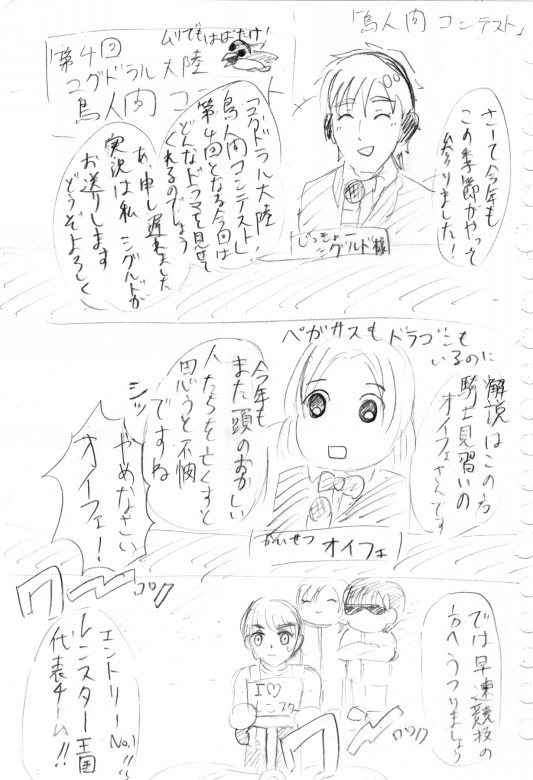 「鳥人間コンテスト」
さーて今年も
この季節がやって
参りました！
ムリでもはばたけ！
第4回
ユグドラル大陸
鳥人間コン
じっきょー
シグルド様
「ユグドラル大陸！
鳥人間コンテスト」
第4回となる今回は
どんなドラマを見せて
くれるのでしょう
あ、申し遅れました
実況は私 シグルドが
お送りします
どうぞよろしく
ペガサスもドラゴンも
いるのに
解説はこの方
騎士見習いの
オイフェさんです
今年も
また頭のおかしい
人たちを亡くすと
思うと不憫
ですね
かいせつ オイフェ
シッ
やめなさい
オイフェ！
では早速競技の
方へうつりましょう
エントリーNo.1!!
レンスター王国
代表チーム!!
ワーーッ
I♡
レンスター
ワーーッ